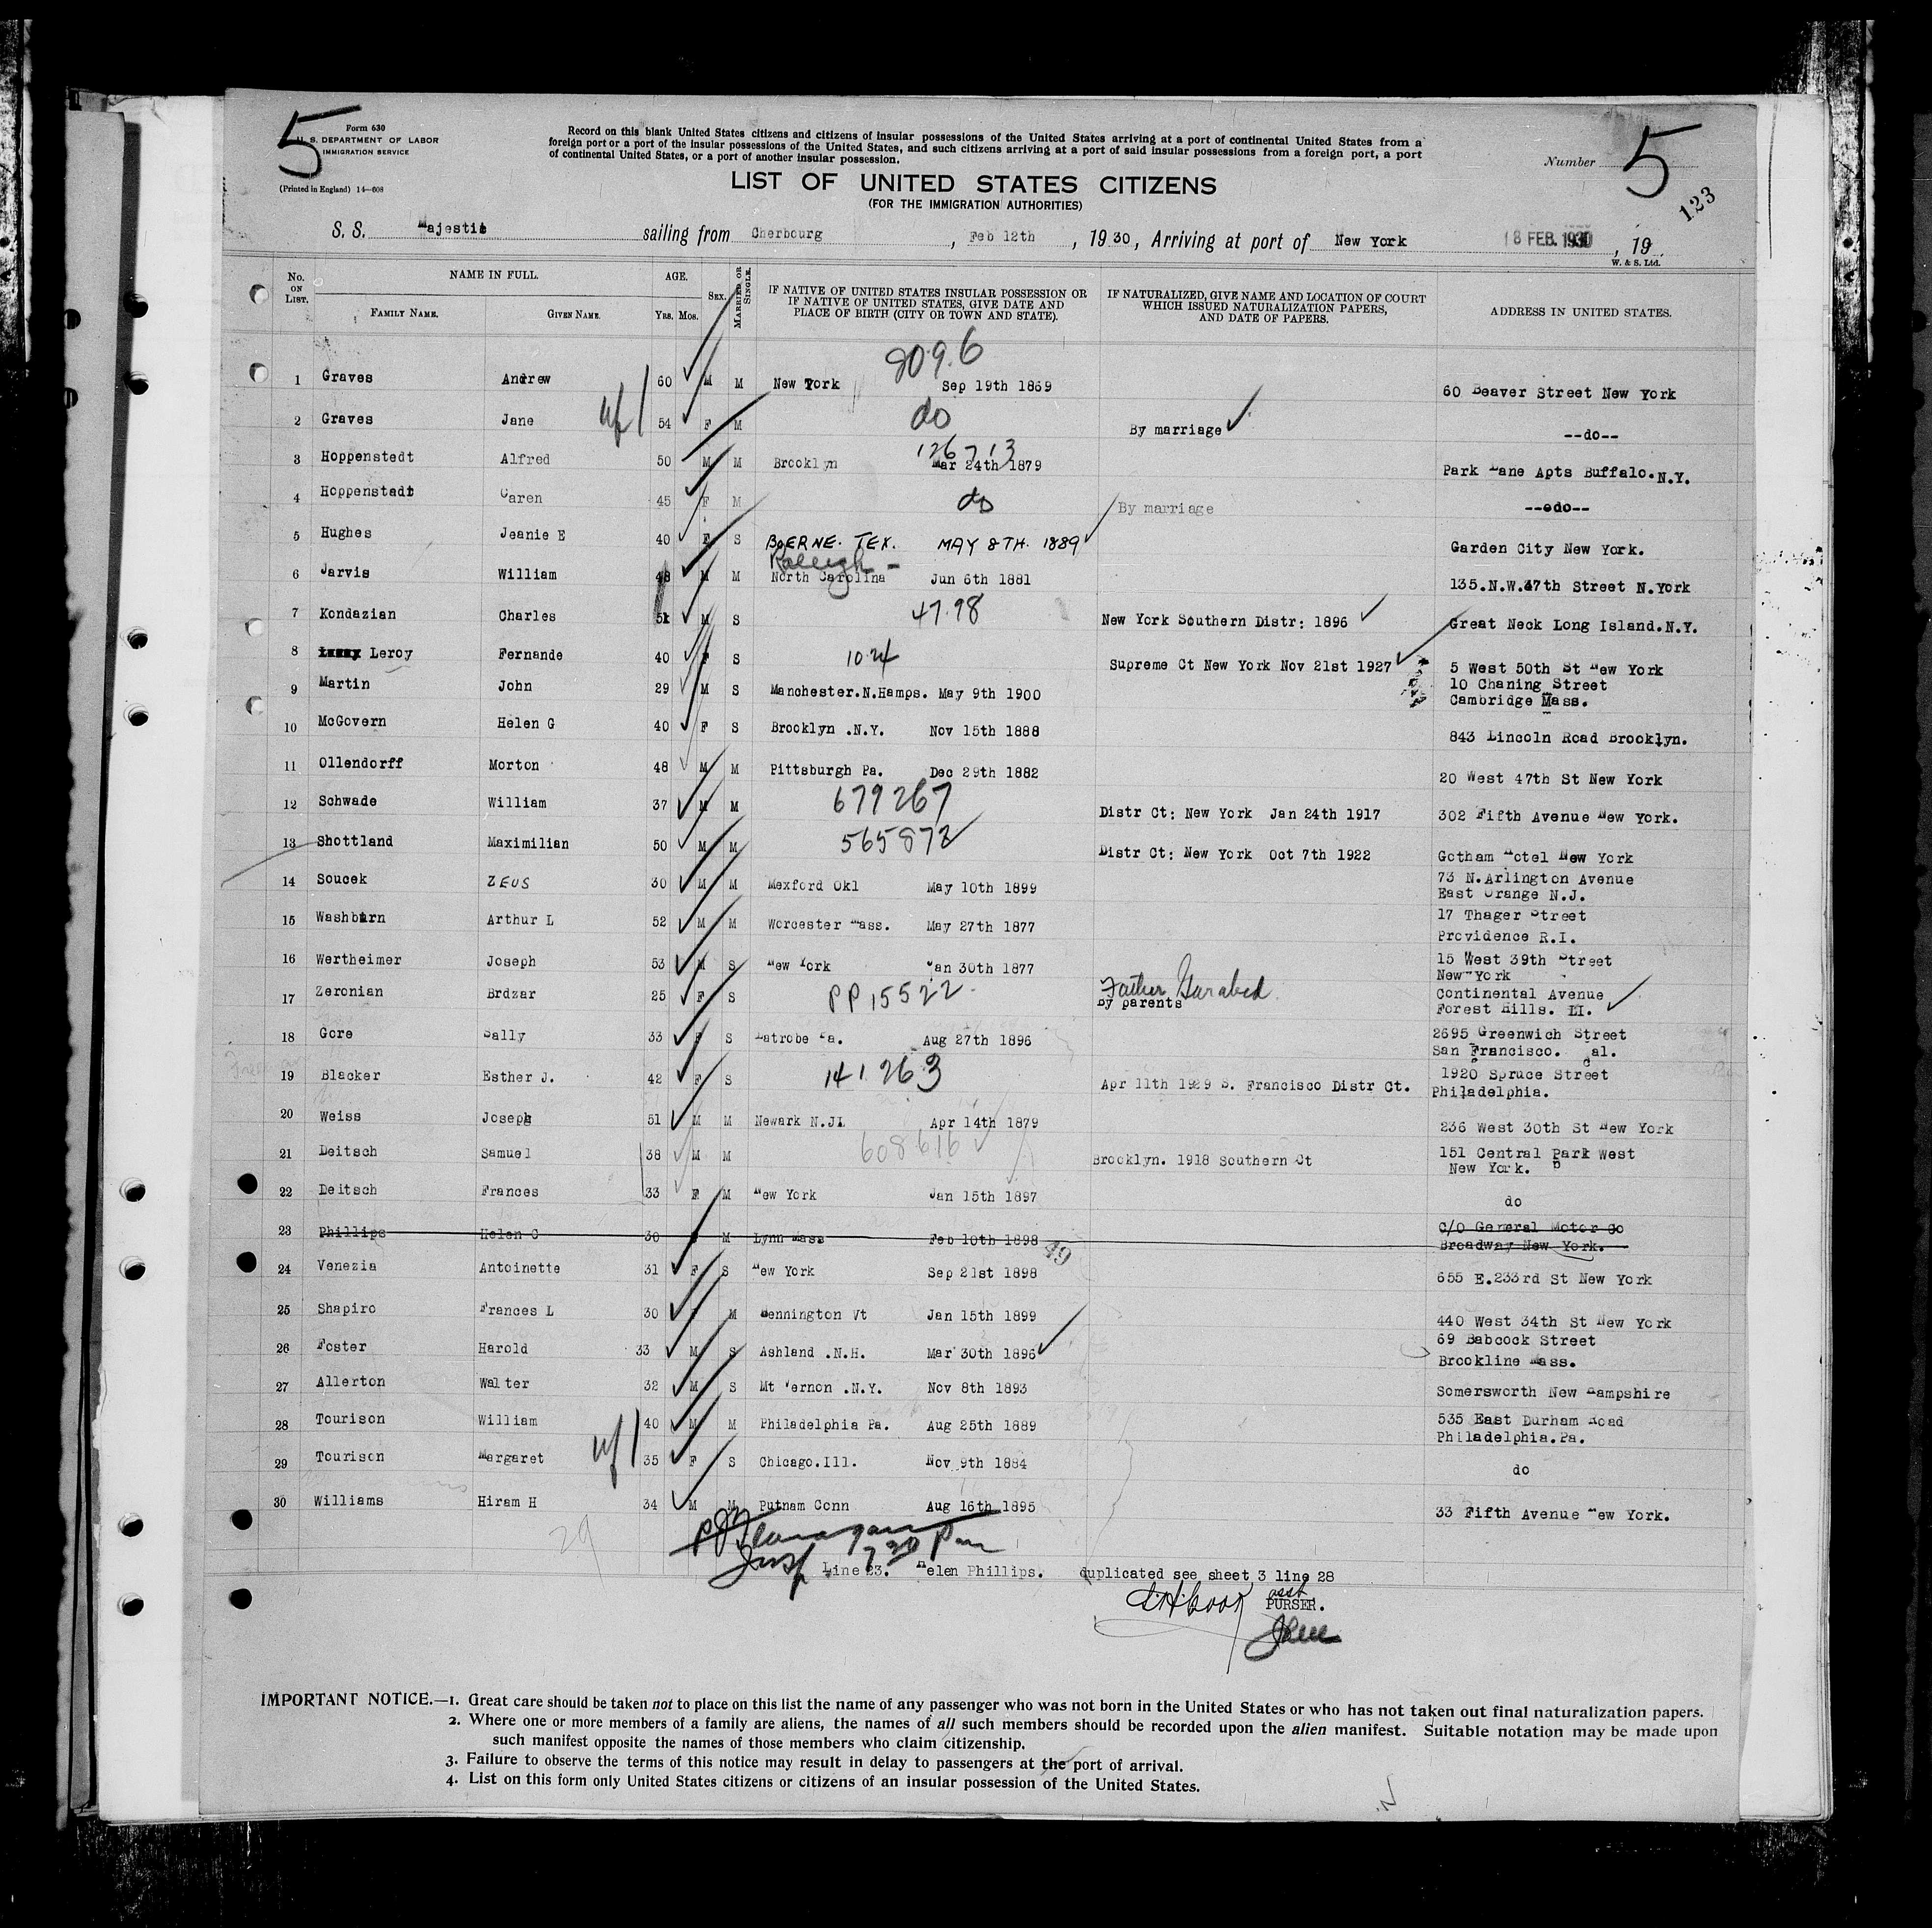 5
Form 630
U. S. DEPARTMENT OF LABOR
IMMIGRATION SERVICE
(Printed in England) 14—608
Record on this blank United States citizens and citizens of insular possessions of the United States arriving at a port of continental United States from a
foreign port or a port of the insular possessions of the United States, and such citizens arriving at a port of said insular possessions from a foreign port, a port
of continental United States, or a port of another insular possession.
Number 5
123
LIST OF UNITED STATES CITIZENS
(FOR THE IMMIGRATION AUTHORITIES)
S. S. Majestic sailing from Cherbourg, Feb 12th, 1930, Arriving at port of New York 18 FEB. 1930, 19
W. & S. Ltd.
No. ON LIST. NAME IN FULL. FAMILY NAME. GIVEN NAME. AGE. YRS. MOS. SEX. MARRIED OR SINGLE. IF NATIVE OF UNITED STATES INSULAR POSSESSION OR IF NATIVE OF UNITED STATES, GIVE DATE AND PLACE OF BIRTH (CITY OR TOWN AND STATE). IF NATURALIZED, GIVE NAME AND LOCATION OF COURT WHICH ISSUED NATURALIZATION PAPERS, AND DATE OF PAPERS. ADDRESS IN UNITED STATES.
809.6
1 Graves Andrew 60 M M New York Sep 19th 1869 60 Beaver Street New York
2 Graves Jane wf 54 F M do By marriage --do--
126713
3 Hoppenstedt Alfred 50 M M Brooklyn Mar 24th 1879 Park Lane Apts Buffalo.N.Y.
4 Hoppenstedt Caren 45 F M do By marriage --do--
5 Hughes Jeanie E 40 F S BOERNE. TEX. MAY 8TH. 1889 Garden City New York.
Raleigh -
6 Jarvis William 48 M M North Carolina Jun 6th 1881 135.N.W.47th Street N.York
7 Kondazian Charles 51 M S 47.98 New York Southern Distr: 1896 Great Neck Long Island.N.Y.
8 Leroy Fernande 40 F S 10.24 Supreme Ct New York Nov 21st 1927 5 West 50th St New York
9 Martin John 29 M S Manchester.N.Hamps. May 9th 1900 10 Chaning Street
Cambridge Mass.
10 McGovern Helen G 40 F S Brooklyn .N.Y. Nov 15th 1888 843 Lincoln Road Brooklyn.
11 Ollendorff Morton 48 M M Pittsburgh Pa. Dec 29th 1882 20 West 47th St New York
12 Schwade William 37 M M 679267 Distr Ct: New York Jan 24th 1917 302 Fifth Avenue New York.
13 Shottland Maximilian 50 M M 565872 Distr Ct: New York Oct 7th 1922 Gotham Hotel New York
14 Soucek ZEUS 30 M M Mexford Okl May 10th 1899 73 N.Arlington Avenue
East Orange N.J.
15 Washburn Arthur L 52 M M Worcester Mass. May 27th 1877 17 Thager Street
Providence R.I.
16 Wertheimer Joseph 53 M S New York Jan 30th 1877 15 West 39th Street
New York
17 Zeronian Brdzar 25 F S PP 15522. Father Garabed. Continental Avenue
by parents Forest Hills. LI.
18 Gore Sally 33 F S Latrobe Pa. Aug 27th 1896 2695 Greenwich Street
San Francisco. Cal.
19 Blacker Esther J. 42 F S 141263 Apr 11th 1929 S. Francisco Distr Ct. 1920 Spruce Street
Philadelphia.
20 Weiss Joseph 51 M M Newark N.J. Apr 14th 1879 236 West 30th St New York
21 Deitsch Samuel 38 M M 608616 Brooklyn. 1918 Southern Ct 151 Central Park West
New York.
22 Deitsch Frances 33 F M New York Jan 15th 1897 do
23 Phillips Helen C 30 F M Lynn Mass Feb 10th 1898 49 C/O General Motor Co
Broadway New York.
24 Venezia Antoinette 31 F S New York Sep 21st 1898 655 E.233rd St New York
25 Shapiro Frances L 30 F M Bennington Vt Jan 15th 1899 440 West 34th St New York
26 Foster Harold 33 M S Ashland .N.H. Mar 30th 1896 69 Babcock Street
Brookline Mass.
27 Allerton Walter 32 M S Mt Vernon .N.Y. Nov 8th 1893 Somersworth New Hampshire
28 Tourison William 40 M M Philadelphia Pa. Aug 25th 1889 535 East Durham Road
Philadelphia.Pa.
29 Tourison Margaret wf 35 F S Chicago.Ill. Nov 9th 1884 do
30 Williams Hiram H 34 M M Putnam Conn Aug 16th 1895 33 Fifth Avenue New York.
29
Line 23. Helen Phillips. duplicated see sheet 3 line 28
asst
PURSER.
IMPORTANT NOTICE.—1. Great care should be taken not to place on this list the name of any passenger who was not born in the United States or who has not taken out final naturalization papers.
2. Where one or more members of a family are aliens, the names of all such members should be recorded upon the alien manifest. Suitable notation may be made upon
such manifest opposite the names of those members who claim citizenship.
3. Failure to observe the terms of this notice may result in delay to passengers at the port of arrival.
4. List on this form only United States citizens or citizens of an insular possession of the United States.